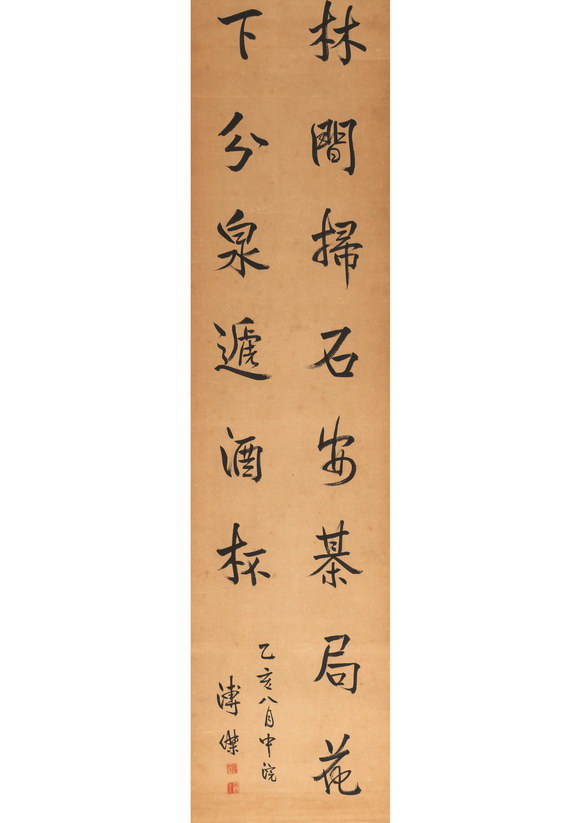 林間掃石安棊局花
下分泉遞酒杯
乙亥八月中浣
溥傑